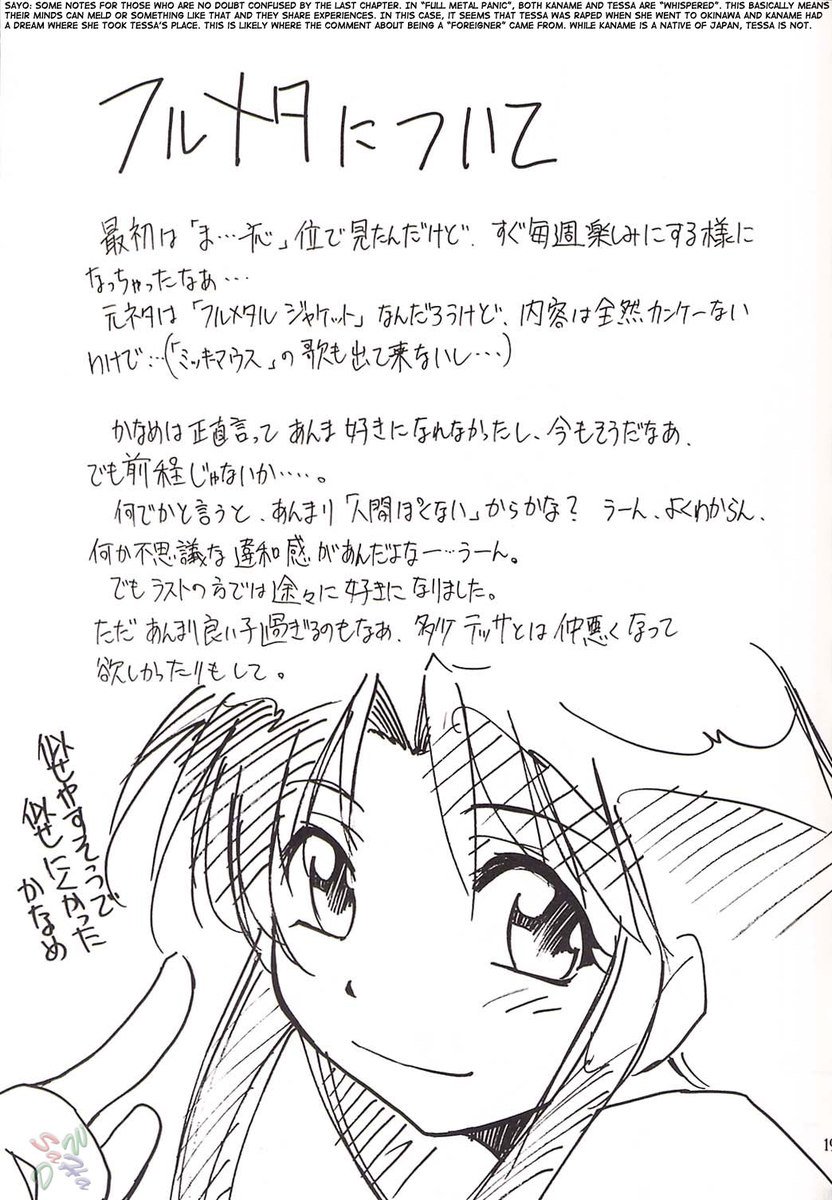 SAYO: SOME NOTES FOR THOSE WHO ARE NO DOUBT CONFUSED BY THE LAST CHAPTER. IN "FULL METAL PANIC", BOTH KANAME AND TESSA ARE "WHISPERED". THIS BASICALLY MEANS
THEIR MINDS CAN MELD OR SOMETHING LIKE THAT AND THEY SHARE EXPERIENCES. IN THIS CASE, IT SEEMS THAT TESSA WAS RAPED WHEN SHE WENT TO OKINAWA AND KANAME HAD
A DREAM WHERE SHE TOOK TESSA'S PLACE. THIS IS LIKELY WHERE THE COMMENT ABOUT BEING A "FOREIGNER" CAME FROM. WHILE KANAME IS A NATIVE OF JAPAN, TESSA IS NOT.
フルメタについて
最初は「ま…」位で見たんだけど、すぐ毎週楽しみにする様に
なっちゃったなあ…
元ネタは「フルメタルジャケット」なんだろうけど、内容は全然カンケーない
わけで…(「ミッキーマウス」の歌も出て来ないし…)
かなめは正直言って あんま好きになれなかったし、今もそうだなあ、
でも前程じゃないか….。
何でかと言うと、あんまり「人間ぽくない」からかな? うーん、よくわからん、
何か不思議な違和感があんだよなー…うーん。
でもラストの方では途々に好きになりました。
ただあんまり良い子過ぎるのもなあ、多少テッサとは仲悪くなって
欲しかったりもして。
似せやすそうで
似せにくかった
かなめ
19